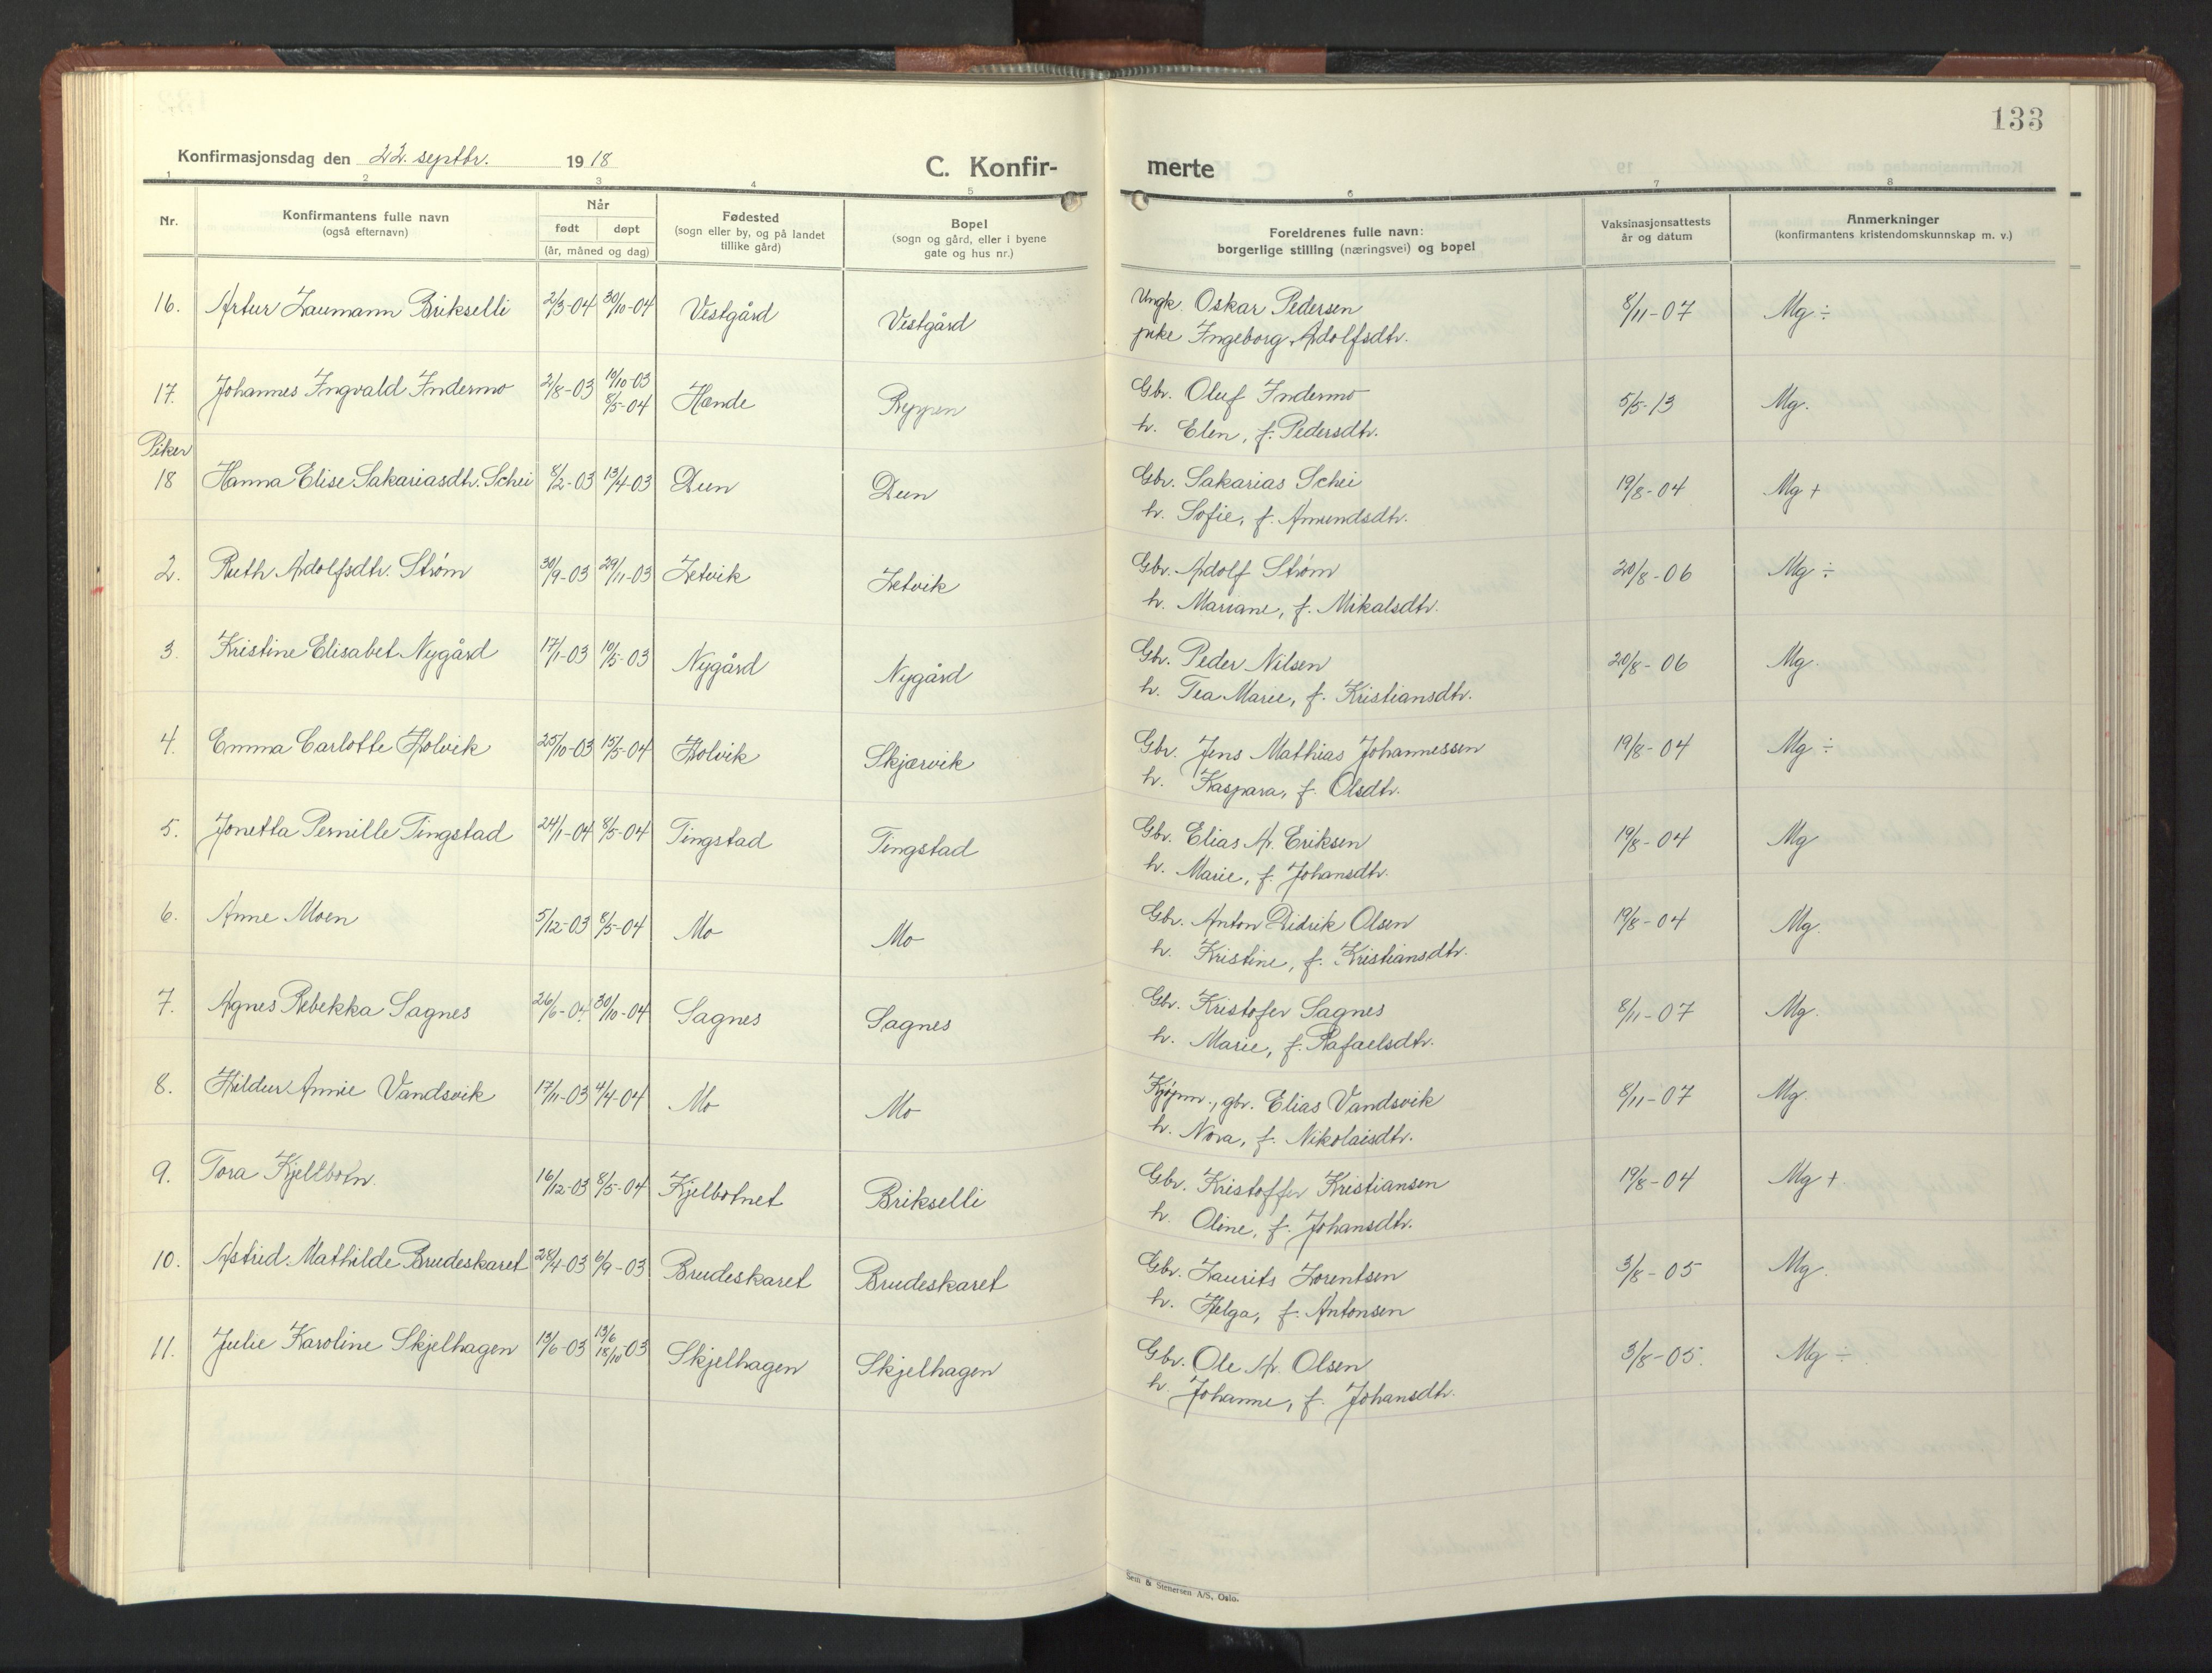 133
Konfirmasjonsdag den 22. septbr. 1918
C. Konfir-
merte
1 2 3 4 5 6 7 8
Nr.
Konfirmantens fulle navn
(også efternavn)
Når
født døpt
(år, måned og dag)
Fødested
(sogn eller by, og på landet
tillike gård)
Bopel
(sogn og gård, eller i byene
gate og hus nr.)
Foreldrenes fulle navn:
borgerlige stilling (næringsvei) og bopel
Vaksinasjonsattests
år og datum
Anmerkninger
(konfirmantens kristendomskunnskap m. v.)
16. Artur Laumann Brikselli 2/3-04 30/10-04 Vestgård Vestgård Ungk. Oskar Pedersen 8/11-07 Mg ÷
pike Ingeborg Adolfsdtr.
17. Johannes Ingvald Indermo 2/8-03 19/10-03 Hænde Reppen Gbr. Oluf Indermo 5/5-13 Mg.
8/5-04
h. Elen, f. Pedersdtr.
Piker
18 Hanna Elise Sakariasdtr. Schei 8/2-03 13/4-03 Dun Dun Gbr. Sakarias Schei 19/8-04 Mg +
h. Sofie, f. Amundsdtr.
2. Ruth Adolfsdtr. Strøm 30/9-03 29/11-03 Letvik Letvik Gbr. Adolf Strøm 20/8-06 Mg ÷
h. Mariane, f. Mikalsdtr.
3. Kristine Elisabet Nygård 17/1-03 10/5-03 Nygård Nygård Gbr. Peder Nilsen 20/8-06 Mg.
h. Tea Marie, f. Kristiansdtr.
4. Emma Carlotte Holvik 25/10-03 15/5-04 Holvik Skjærvik Gbr. Jens Mathias Johannessen 19/8-04 Mg ÷
h. Kaspara, f. Olsdtr.
5. Jonetta Pernille Tingstad 24/1-04 8/5-04 Tingstad Tingstad Gbr. Elias A. Eriksen 19/8-04 Mg
h. Marie, f. Johansdtr.
6. Anne Moen 5/12-03 8/5-04 Mo Mo Gbr. Anton Didrik Olsen 19/8-04 Mg.
h. Kristine, f. Kristiansdtr.
7. Agnes Rebekka Sagnes 26/6-04 30/10-04 Sagnes Sagnes Gbr. Kristofer Sagnes 8/11-07 Mg.
h. Marie, f. Rafaelsdtr.
8. Hildur Annie Vandsvik 17/11-03 4/4-04 Mo Mo Kjøpm., gbr. Elias Vandsvik 8/11-07 Mg.
h. Nora, f. Nikolaisdtr.
9. Tora Kjelbotn 16/12-03 8/5-04 Kjelbotnet Brikselli Gbr. Kristoffer Kristiansen 19/8-04 Mg +
h. Oline, f. Johansdtr.
10. Astrid Mathilde Brudeskaret 28/4-03 6/9-03 Brudeskaret Brudeskaret Gbr. Laurits Lorentsen 3/8-05 Mg.
h. Helga, f. Antonsen
11. Julie Karoline Skjelhagen 13/6-03 13/6 Skjelhagen Skjelhagen Gbr. Ole A. Olsen 3/8-05. Mg ÷
18/10-03
h. Johanne, f. Johansdtr.
Sem & Stenersen A/S, Oslo.